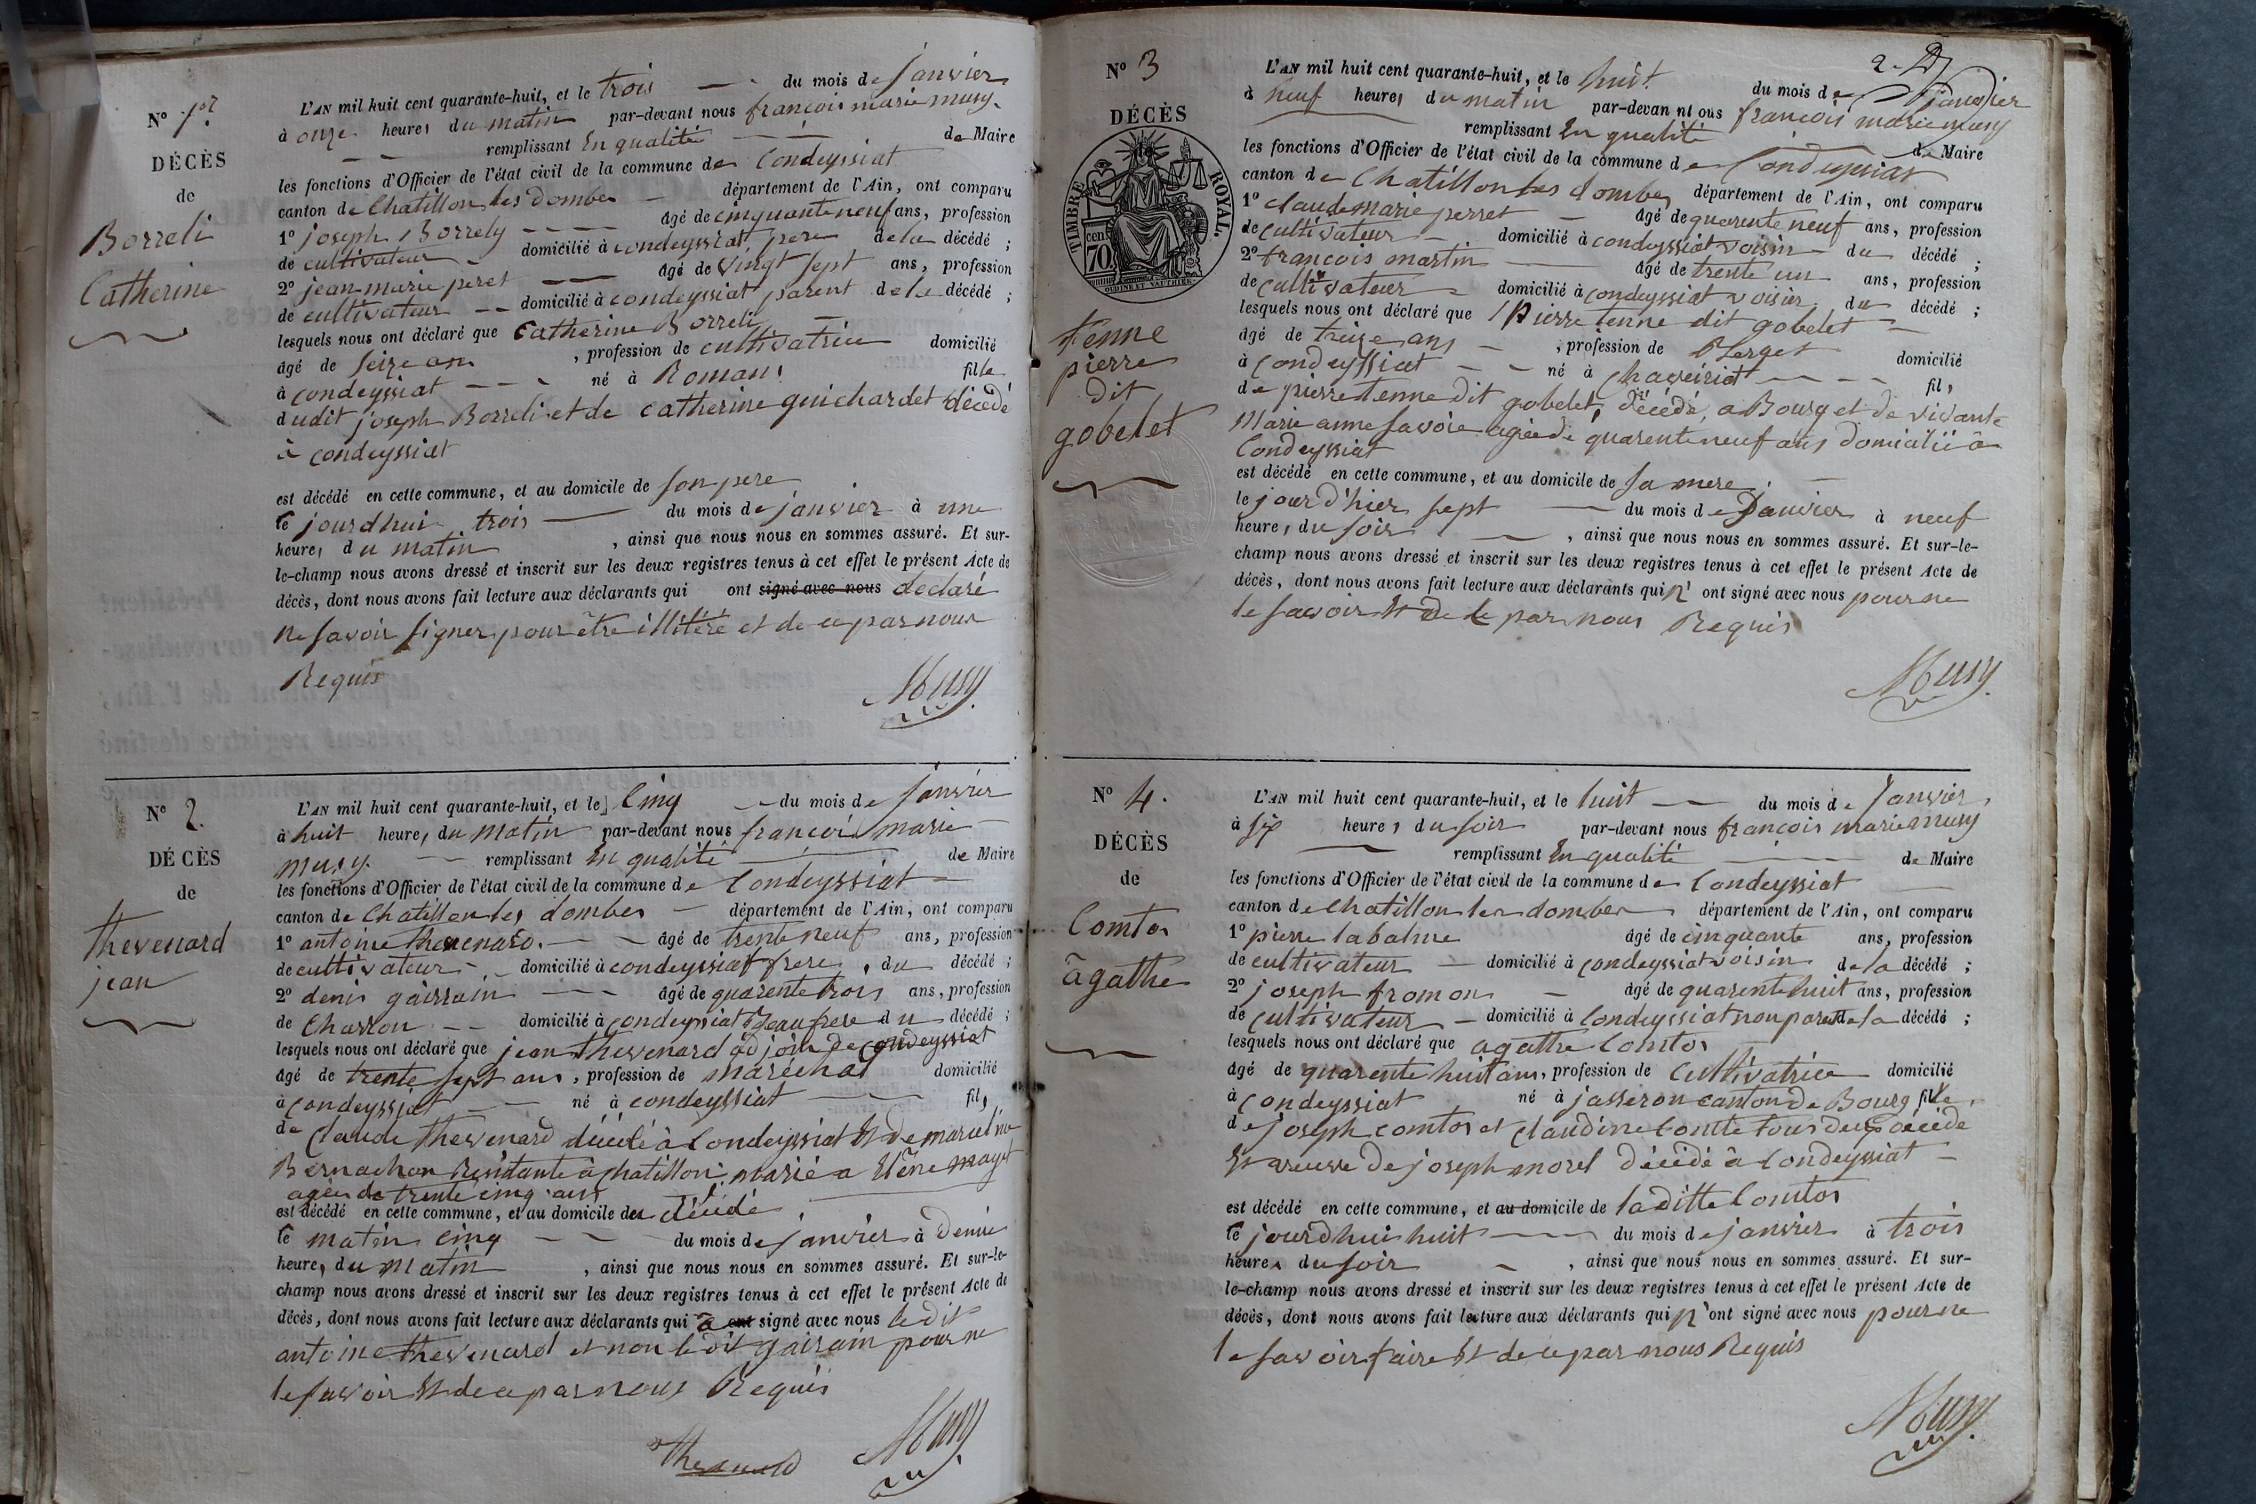 N° 1er
DÉCÈS
de
Borreli
Catherine
L'AN mil huit cent quarante-huit, et le trois du mois de janvier
à onze heures du matin par-devant nous françois marie musy
remplissant En qualité de Maire
les fonctions d'Officier de l'état civil de la commune de Condeyssiat
canton de Chatillon les dombes département de l'Ain, ont comparu
1° joseph Borrely âgé de cinquante neuf ans, profession
de cultivateur domicilié à condeyssiat pere de la décédé ;
2° jean marie peret âgé de vingt sept ans, profession
de cultivateur domicilié à condeyssiat parent de la décédé ;
lesquels nous ont déclaré que Catherine Borreli
âgé de seize an , profession de cultivatrice domicilié
à condeyssiat né à Romans fille
dudit joseph Borreli et de catherine guichardet décédé
à condeyssiat
est décédé en cette commune, et au domicile de son pere
le jourdhui trois du mois de janvier à une
heure, du matin , ainsi que nous nous en sommes assuré. Et sur-
le-champ nous avons dressé et inscrit sur les deux registres tenus à cet effet le présent Acte de
décès, dont nous avons fait lecture aux déclarants qui ont signé avec nous declaré
ne savoir signer pour être illitéré et de ce par nous
Requis
Musy
N° 2.
DÉCÈS
de
thevenard
jean
L'AN mil huit cent quarante-huit, et le cinq du mois de janvier
à huit heure, du matin par-devant nous françois marie
musy. remplissant En qualité de Maire
les fonctions d'Officier de l'état civil de la commune de Condeyssiat
canton de Chatillon les dombes département de l'Ain, ont comparu
1° antoine thevenard âgé de trente neuf ans, profession
de cultivateur domicilié à condeyssiat frere , du décédé ;
2° denis gairrain âgé de quarente trois ans, profession
de Charron domicilié à condeyssiat Beaufrere du décédé ;
lesquels nous ont déclaré que jean thevenard adjoin de condeyssiat
âgé de trente sept ans , profession de maréchal domicilié
à condeyssiat né à condeyssiat fils
de Claude thevenard décédé à Condeyssiat Et de
Bernachon Résidante à chatillon marié a
agée de trente cinq ans
est décédé en cette commune, et au domicile du décédé
le matin cinq du mois de janvier à demie
heure, du matin , ainsi que nous nous en sommes assuré. Et sur-le-
champ nous avons dressé et inscrit sur les deux registres tenus à cet effet le présent Acte de
décès, dont nous avons fait lecture aux déclarants qui a ont signé avec nous le dit
antoine thevenard et non le dit gairain pour ne
le savoir Et de ce par nous Requis
Thevenard Musy
N° 3
DÉCÈS
TIMBRE ROYAL.
cen 70
Tenne
pierre
dit
gobelet
2.
L'AN mil huit cent quarante-huit, et le huit du mois de janvier
à neuf heures du matin par-devan nt ous françois marie musy
remplissant En qualité de Maire
les fonctions d'Officier de l'état civil de la commune de Condeyssiat
canton de Chatillon les dombes département de l'Ain, ont comparu
1° claude marie perret âgé de quarente neuf ans, profession
de cultivateur domicilié à condeyssiat voisin du décédé ;
2° francois martin âgé de trente un ans, profession
de cultivateur domicilié à condeyssiat voisin du décédé ;
lesquels nous ont déclaré que Pierre tenne dit gobelet
âgé de treize ans , profession de Berger domicilié
à Condeyssiat né à Chaveiriat fils
de pierre tenne dit gobelet, décédé, a Bourg et de vivante
Marie anne savoie agée de quarente neuf ans domicilié à
Condeyssiat
est décédé en cette commune, et au domicile de sa mere
le jour d'hier sept du mois de janvier à neuf
heure, du soir , ainsi que nous nous en sommes assuré. Et sur-le-
champ nous avons dressé et inscrit sur les deux registres tenus à cet effet le présent Acte de
décès, dont nous avons fait lecture aux déclarants qui n' ont signé avec nous pour ne
le savoir Et de ce par nous Requis
Musy
N° 4.
DÉCÈS
de
Comtos
agathe
L'AN mil huit cent quarante-huit, et le huit du mois de janvier
à six heures du soir par-devant nous françois marie musy
remplissant En qualité de Maire
les fonctions d'Officier de l'état civil de la commune de Condeyssiat
canton de chatillon les dombes département de l'Ain, ont comparu
1° pierre labalme âgé de cinquante ans, profession
de cultivateur domicilié à condeyssiat voisin de la décédé ;
2° joseph fromon âgé de quarente huit ans, profession
de cultivateur domicilié à Condeyssiat non parent de la décédé ;
lesquels nous ont déclaré que agathe Comtos
âgé de quarente huit ans, profession de cultivatrice domicilié
à condeyssiat né à jasseron canton de Bourg fille
de joseph comtos et claudine Comte tous deux décédé
Et veuve de joseph morel décédé à Condeyssiat
est décédé en cette commune, et au domicile de la ditte Comtos
le jourd'hui huit du mois de janvier à trois
heures du soir , ainsi que nous nous en sommes assuré. Et sur-
le-champ nous avons dressé et inscrit sur les deux registres tenus à cet effet le présent Acte de
décès, dont nous avons fait lecture aux déclarants qui n'ont signé avec nous pour ne
le savoir faire Et de ce par nous Requis
Musy